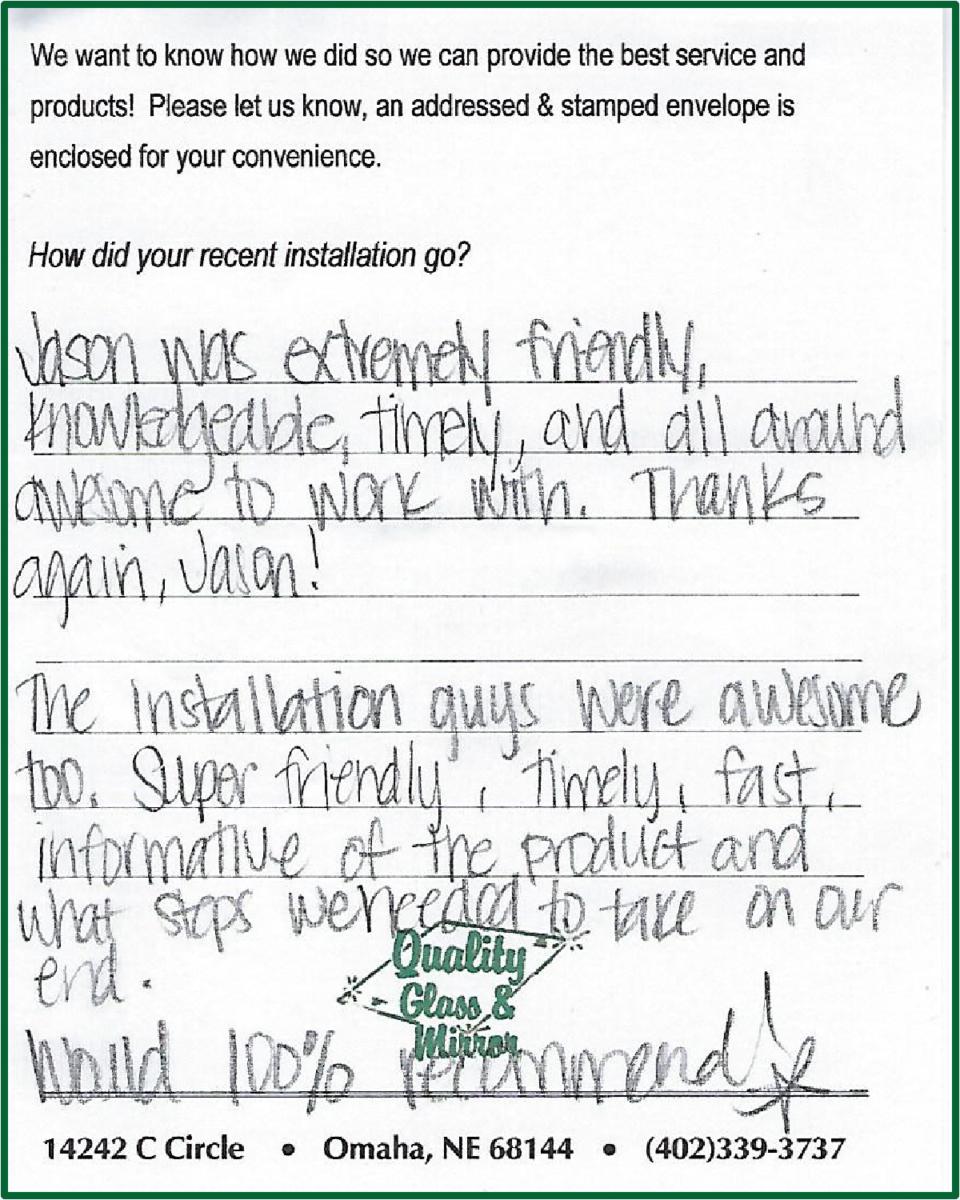 We want to know how we did so we can provide the best service and
products! Please let us know, an addressed & stamped envelope is
enclosed for your convenience.
How did your recent installation go?
Jason was extremely friendly,
knowledgeable, timely, and all around
awesome to work with. Thanks
again, Jason!
The installation guys were awesome
too. Super friendly, timely, fast,
informative of the product and
what steps we needed to take on our
end.
Quality
Glass &
Mirror
Would 100% recommend!
14242 C Circle • Omaha, NE 68144 • (402)339-3737